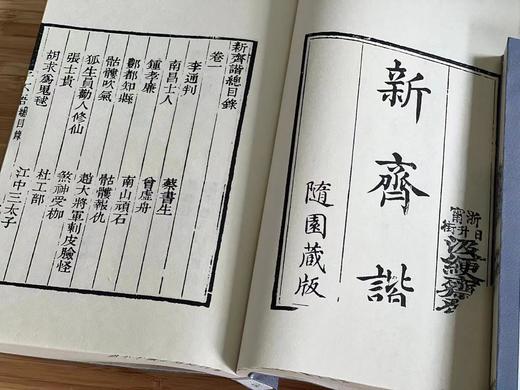 浙甯
日升街
新齊諧
隨園蔵版
新齊諧總目錄
卷一
李通判 蔡書生
南昌士人 曾虛舟
鍾孝廉 南山頑石
酆都知縣 骷髏報仇
骷髏吹氣 趙大將軍刺皮臉怪
狐生員勸人修仙 煞神受枷
張士貴 杜工部
胡求爲鬼毬 江中三太子